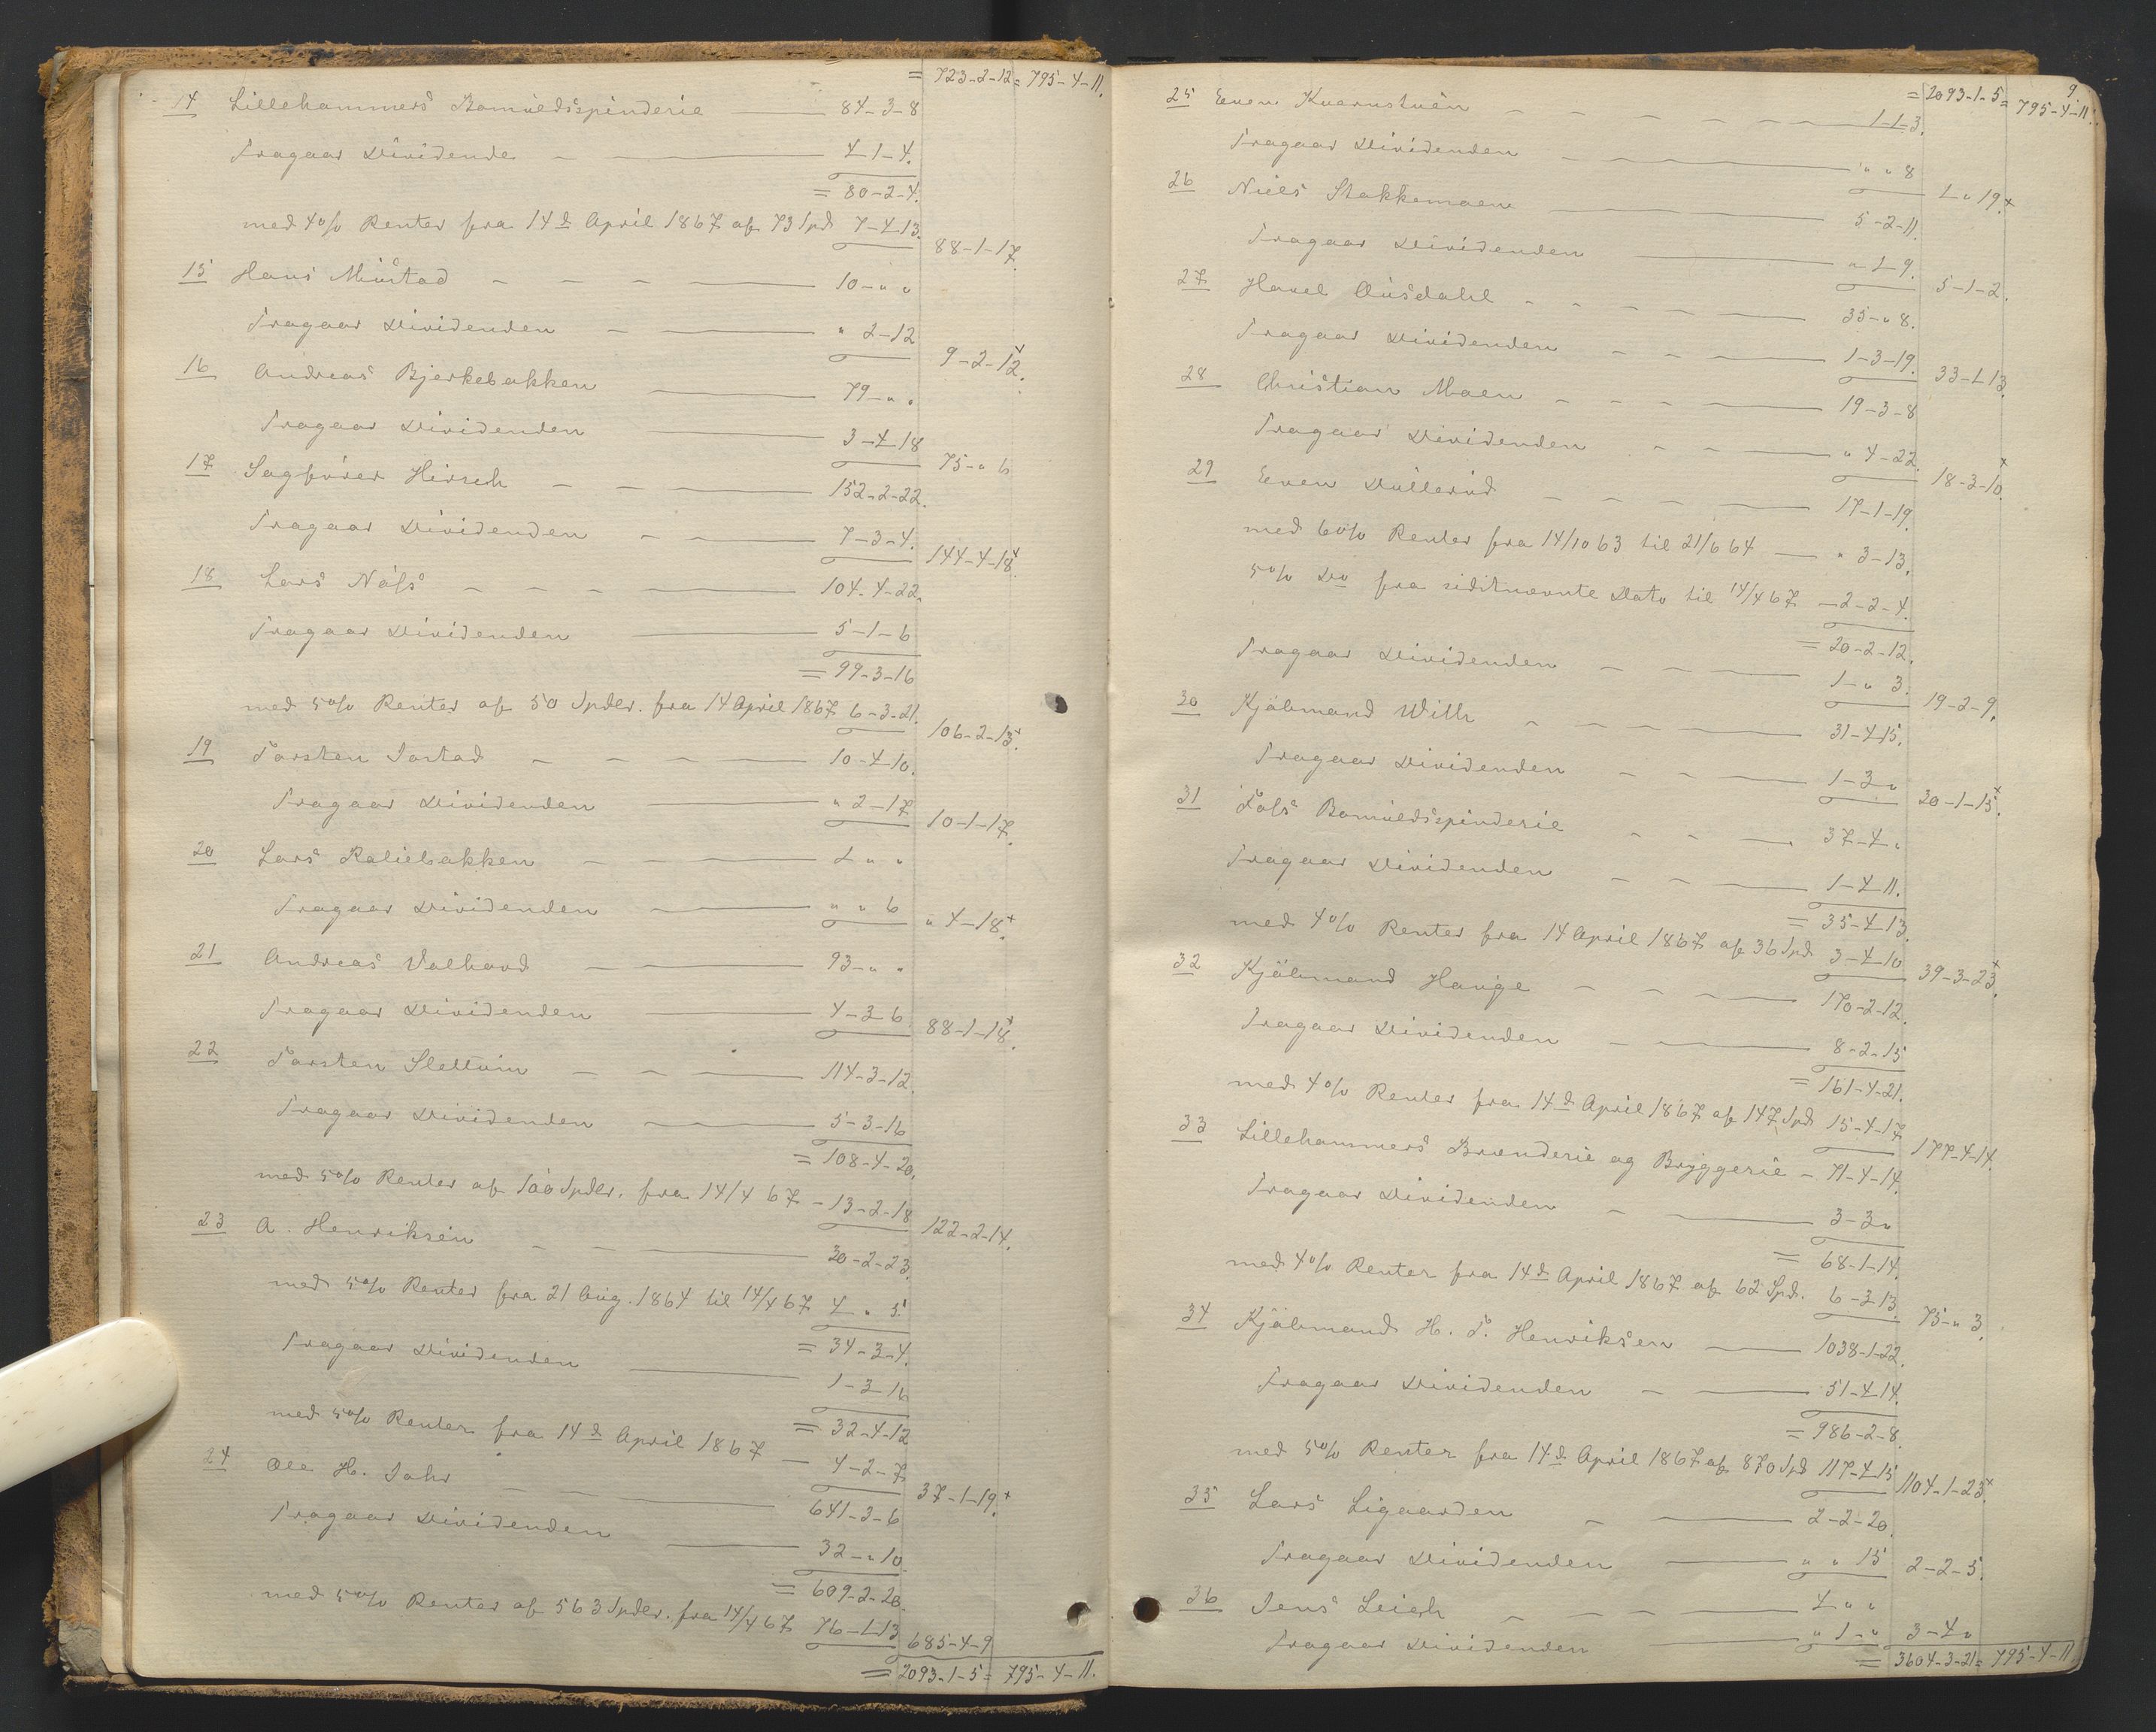 = 723-2-12 = 795-4-11.
14 Lillehammers Bomuldsspinderie — 84-3-8
Fragaar Dividende — 4-1-4.
= 80-2-4.
med 4% Renter fra 14d April 1867 af 73 Spd 7-4-13. 88-1-17.
15 Hans Mustad — 10-" "
Fragaar Dividenden — " 2-12 9-2-12.
16 Andreas Bjerkebakken — 79-" "
Fragaar Dividenden — 3-4-18 75-" 6
17 Sagfører Hirsch — 152-2-22.
Fragaar Dividenden — 7-3-4. 144-4-18.
18 Lars Næss — 104-4-22.
Fragaar Dividenden — 5-1-6
= 99-3-16
med 5% Renter af 50 Spdlr. fra 14 April 1867 6-3-21. 106-2-13.
19 Torsten Jostad — 10-4-10.
Fragaar Dividenden — " 2-17 10-1-17.
20 Lars Kaliebakken — 1 " "
Fragaar Dividenden — " " 6 " 4-18.
21 Andreas Valhovd — 93-" "
Fragaar Dividenden — 4-3-6 88-1-18.
22 Torsten Slettum — 114-3-12.
Fragaar Dividenden — 5-3-16
= 108-4-20.
med 5% Renter af 100 Spdlr. fra 14/4 67 — 13-2-18 122-2-14.
23 A. Henriksen — 30-2-23.
med 5% Renter fra 21 Aug. 1864 til 14/4 67 4 " 5.
= 34-3-4.
Fragaar Dividenden — 1-3-16
= 32-4-12
med 5% Renter fra 14d April 1867 — 4-2-7 37-1-19.
24 Ole H. Jahr — 641-3-6
Fragaar Dividenden — 32-" 10
= 609-2-20.
med 5% Renter af 563 Spdlr. fra 14/4 67 76-1-13 685-4-9
= 2093-1-5 = 795-4-11.
9
= 2093-1-5 = 795-4-11.
25 Even Kvernstuen — 1-1-3.
Fragaar Dividenden — " " 8 1 " 19.
26 Niels Stakkemoen — 5-2-11.
Fragaar Dividenden — " 1-9. 5-1-2.
27 Havel Ousdahl — 35-" 8.
Fragaar Dividenden — 1-3-19. 33-1-13.
28 Christian Moen — 19-3-8
Fragaar Dividenden — " 4-22. 18-3-10.
29 Even Dullerud — 17-1-19.
med 6% Renter fra 14/10 63 til 21/6 64 — " 3-13.
5% Do fra sidstnævnte Dato til 14/4 67 — 2-2-4.
= 20-2-12.
Fragaar Dividenden — 1-" 3. 19-2-9.
30 Kjøbmand With — 31-4-15.
Fragaar Dividenden — 1-3 " 30-1-15.
31 Fos's Bomuldsspinderie — 37-4 "
Fragaar Dividenden — 1-4-11.
= 35-4-13.
med 4% Renter fra 14 April 1867 af 36 Spd 3-4-10 39-3-23.
32 Kjøbmand Hauge — 170-2-12.
Fragaar Dividenden — 8-2-15
= 161-4-21.
med 4% Renter fra 14d April 1867 af 147 Spd 15-4-17 177-4-14.
33 Lillehammers Brænderie og Bryggerie — 71-4-14.
Fragaar Dividenden — 3-3 "
= 68-1-14.
med 4% Renter fra 14d April 1867 af 62 Spd. 6-3-13. 75-" 3.
34 Kjøbmand H. T. Henriksen — 1038-1-22.
Fragaar Dividenden — 51-4-14.
= 986-2-8.
med 5% Renter fra 14d April 1867 af 870 Spd 117-4-15 1104-1-23.
35 Lars Ligaarden — 2-2-20.
Fragaar Dividenden — " " 15 2-2-5.
36 Jens Leich — 4 " "
Fragaar Dividenden — " 1-" 3-4 "
= 3604-3-21 = 795-4-11.